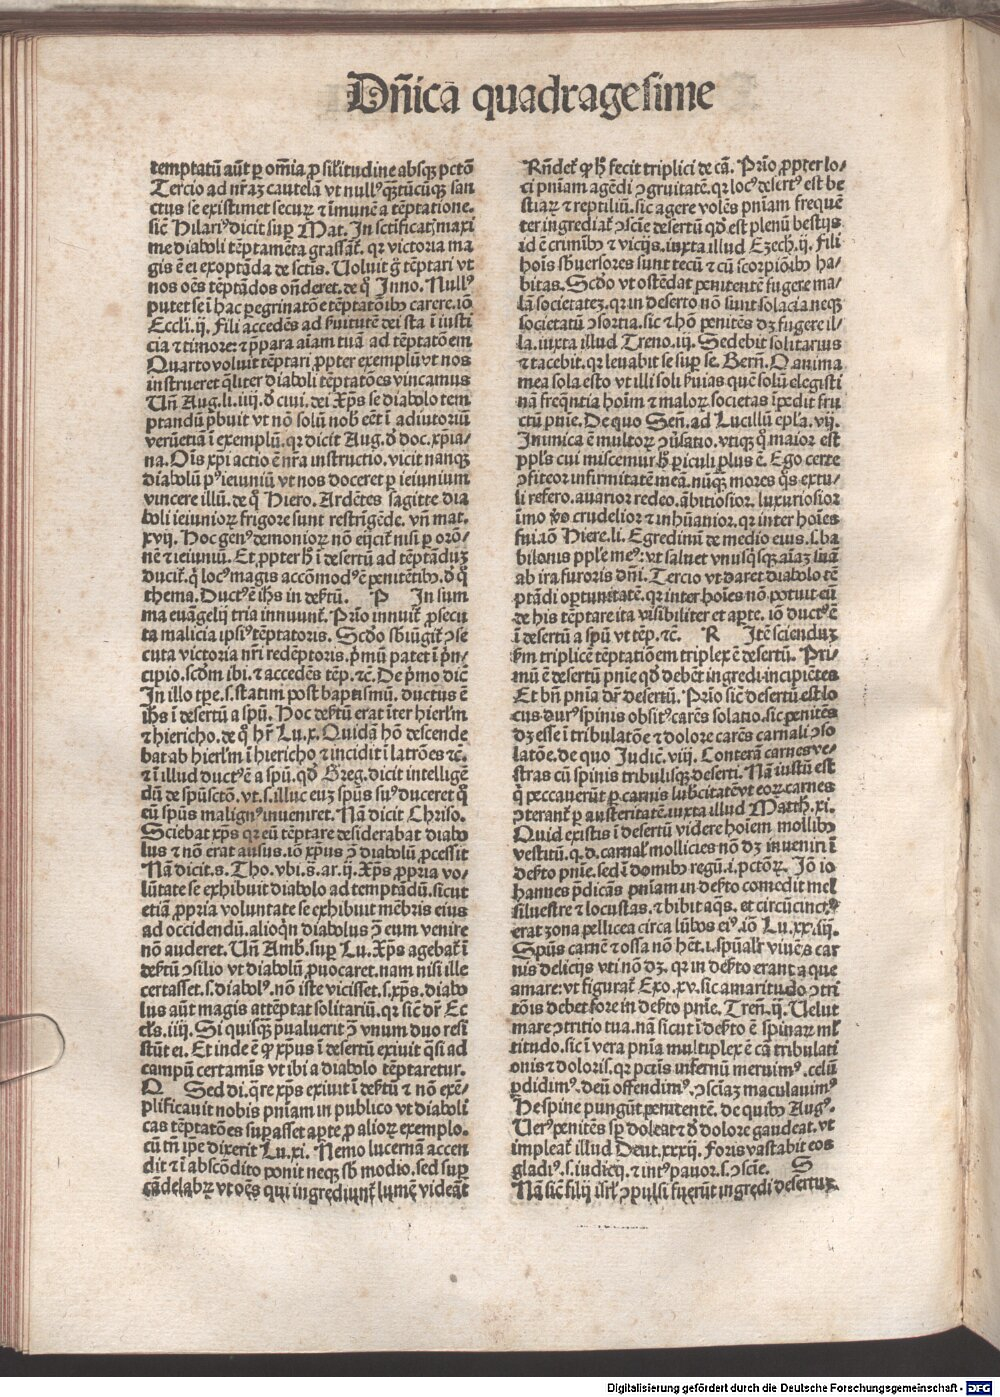 Dn̄icā quadragesime
temptatū aūt ꝑ om̄ia ꝓ sil'itudine absqꝫ pctō
Tercio ad nr̄aꝫ cautelā vt null' qꝫtūcūqꝫ san
ctus se existimet securꝰ ⁊ īmunē a tēptatione.
sicē Hilariꝰ dicit suꝑ Mat. In sctificat; maxi
me diaboli tēptamēta grassāt̄. qꝛ victoria ma
gis ē ei exoptāda de sctis. Uoluit g̊ tēptari vt
nos oēs tēptādos on̄deret. de qͦ Inno. Nullꝰ
putet se ī hac ꝑegrinatōe tēptatōibꝰ carere. iō
Eccli. ij. Fili accedēs ad ẜuitutē dei sta ī iusti
cia ⁊ timore: ⁊ p̄para aīam tuā ad tēptatōem
Quarto voluit tēptari ꝓpter exemplū vt nos
instrueret qͣliter diaboli tēptatōes vincamus
Un̄ Aug. li. iiij. d̓ ciui. dei Xp̄s se diabolo tem
ptandū p̄buit vt nō solū nob̓ eēt ī adiutoriū
verūetiā ī exemplū. qꝛ dicit Aug. d̓ doc. xp̄ia-
na. Oīs xp̄i actio ē nr̄a instructio. vicit nanqꝫ
diabolū pꝰ ieiuniū vt nos doceret ꝑ ieiunium
vincere illū. de qͦ Hiero. Ardētes sagitte dia
boli ieiunioꝝ frigore sunt restrīgēde. vn̄ mat.
xvij. Hoc genꝰ demonioꝝ nō eijcit̄ nisi ꝑ orō-
nē ⁊ ieiuniū. Et ꝓpter h̓ ī desertū ad tēptādū
ducit̄. qͦ locꝰ magis accōmodꝰ ē penitētibꝰ. d̓ qͦ
thema. Ductꝰ ē ih̄s in deẜtū. P In sum
ma euāgelij tria innuunt̄. Prīo innuit̄ ꝓsecu
ta malicia ipsiꝰ tēptatoris. Scd̓o sb̓iūgit̄ ꝯse
cuta victoria nr̄i redēptoris. p̄mū patet ī p̄n-
cipio. scd̓m ibi. ⁊ accedēs tēp. ⁊c̄. De p̄mo dic̄
In illo tp̄e. s. statim post baptismū. ductus ē
ih̄s ī desertū a spū. Hoc deẜtū erat īter hierl̄m
⁊ hiericho. de qͦ hr̄ Lu. x. Quidā hō descende
bat ab hierl̄m ī hiericho ⁊ incidit ī latrōes ⁊c̄.
⁊ ī illud ductꝰ ē a spū. qd̓ Greg. dicit intelligē
dū de spūsctō. vt. s. illuc euꝫ spūs suꝰ duceret qͦ
eū spūs malignꝰ inueniret. Nā dicit Chriso.
Sciebat xp̄s qꝛ eū tēptare desiderabat diabo
lus ⁊ nō erat ausus. iō xp̄us ꝯ̄ diabolū ꝓcessit
Nā dicit. s. Tho. vbi. s. ar. ij. Xp̄s ꝓpria vo-
lūtate se exhibuit diabolo ad temptādū. sicut
etiā ꝓpria voluntate se exhibuit mēbris eius
ad occidendū. alioqͥn diabolus ꝯ̄ eum venire
nō auderet. Un̄ Amb̓. suꝑ Lu. Xp̄s agebat̄ ī
deẜtū ꝯsilio vt diabolū ꝓuocaret. nam nisi ille
certasset. s. diabolꝰ. nō iste vicisset. s. xp̄s. diabo
lus aūt magis attēptat solitariū. qꝛ sic̄ dr̄ Ec
cl̄s. iiij. Si quisqꝫ p̄ualuerit ꝯ̄ vnum duo resi
stūt ei. Et inde ē ꝙ xp̄us ī desertū exiuit qͣsi ad
campū certamis vt ibi a diabolo tēptaretur.
Q Sed di. qͣre xp̄s exiuit ī deẜtū ⁊ nō exē-
plificauit nobis pn̄iam in publico vt diaboli
cas tēptatōes suꝑasset aꝑte ꝓ alioꝝ exemplo.
cū tn̄ ip̄e dixerit Lu. xi. Nemo lucernā accen
dit ⁊ ī abscōdito ponit neqꝫ sb̓ modio. sed suꝑ
cādelabꝝ vt oēs qui ingrediunt̄ lumē videāt
Rn̄det̄ ꝙ h̓ fecit triplici de cā. Prīo ꝓpter lo-
ci pn̄iam agēdi ꝯgruitatē. qꝛ locꝰ desertꝰ est be
stiaꝝ ⁊ reptiliū. sic agere volēs pn̄iam frequē
ter ingrediat̄ ꝯsciē desertū qd̓ est plenū bestijs
id ē crīmibꝰ ⁊ vicijs. iuxta illud Ezech. ij. Fili
hoīs sb̓uersores sunt tecū ⁊ cū scorpiōibꝰ ha-
bitas. Scd̓o vt ostēdat penitentē fugere ma-
lā societateꝫ. qꝛ in deserto nō sunt solacia neqꝫ
societatū ꝯsortia. sic ⁊ hō penitēs dꝫ fugere il-
la. iuxta illud Treno. iij. Sedebit solitarius
⁊ tacebit. qꝛ leuabit se suꝑ se. Bern̄. O anima
mea sola esto vt illi soli ẜuias quē solū elegisti
nā freqn̄tia hoīm ⁊ maloꝝ societas īpedit fru
ctū pn̄ie. De quo Sen̄. ad Lucillū epl̄a. vij.
Inimica ē multoꝝ ꝯ̄uẜatio. vtiqꝫ qͦ maior est
ppl̓s cui miscemur h̓ ꝑiculi plus ē. Ego certe
ꝯfiteor infirmitatē meā. nūqͣꝫ mores qͦs extu-
li refero. auarior redeo. ābitiosior. luxuriosior
īmo ꝟo crudelior ⁊ inhūanior. qꝛ inter hoīes
fui. iō Hiere. li. Egredimī de medio eius. s. ba
bilonis pple meꝰ: vt saluet vnusqͥsqꝫ aīaꝫ suā
ab ira furoris dn̄i. Tercio vt daret diabolo tē
ptādi oportunitatē. qꝛ inter hoīes nō potuit eū
de his tēptare ita visibiliter et aꝑte. iō ductꝰ ē
ī desertū a spū vt tēp. ⁊c̄. R Itē sciendūꝫ
ẜm triplicē tēptatiōem triplex ē desertū. Pri-
mū ē desertū pn̄ie qd̓ debēt ingredi incipiētes
Et bn̄ pn̄ia dr̄ desertū. Prīo sic̄ desertū est lo
cus durꝰ spinis obsitꝰ carēs solatio. sic penitēs
dꝫ esse ī tribulatōe ⁊ dolore carēs carnali ꝯso
latōe. de quo Judic̄. viij. Conterā carnes ve-
stras cū spinis tribulisqꝫ deserti. Nā iustū est
qͥ peccauerūt ꝑ carnis lubricitatē vt eoꝝ carnes
ꝯterant̄ ꝑ austeritatē. iuxta illud Matth̄. xi.
Quid existis ī desertū videre hoīem mollibꝰ
vestitū. q. d. carnal' mollicies nō dꝫ inueniri ī
deẜto pn̄ie. sed ī domibꝰ regū. i. pctōꝝ. Jō io
hannes p̄dicās pn̄iam in deẜto comedit mel
siluestre ⁊ locustas. ⁊ bibit aqͣs. et circūcinctꝰ
erat zona pellicea circa lūbos eiꝰ. iō Lu. xxiiij.
Spūs carnē ⁊ ossa nō hēt. i. spūalr̄ viuēs car
nis delicijs vti nō dꝫ. qꝛ in deẜto erant aque
amare: vt figurat̄ Exo. xv. sic amaritudo ꝯtri
tōis debet fore in deẜto pn̄ie. Tren̄. ij. Uelut
mare ꝯtritio tua. nā sicut ī deẜto ē spinaꝝ ml̓
titudo. sic ī vera pn̄ia multiplex ē cā tribulati
onis ⁊ doloris. qꝛ pctīs infernū meruimꝰ. celū
ꝑdidimꝰ. deū offendimꝰ. ꝯsciāꝫ maculauimꝰ
He spine pungūt penitentē. de quibꝰ Augꝰ.
Uerꝰ penitēs sꝑ doleat ⁊ d̓ dolore gaudeat. vt
impleat̄ illud Deut. xxxij. Foris vastabit eos
gladiꝰ. s. iudicij. ⁊ intꝰ pauor. s. ꝯscīe. S
Nā sic̄ filij isrl̄ ꝯpulsi fuerūt ingredi desertuꝫ
Digitalisierung gefördert durch die Deutsche Forschungsgemeinschaft - DFG